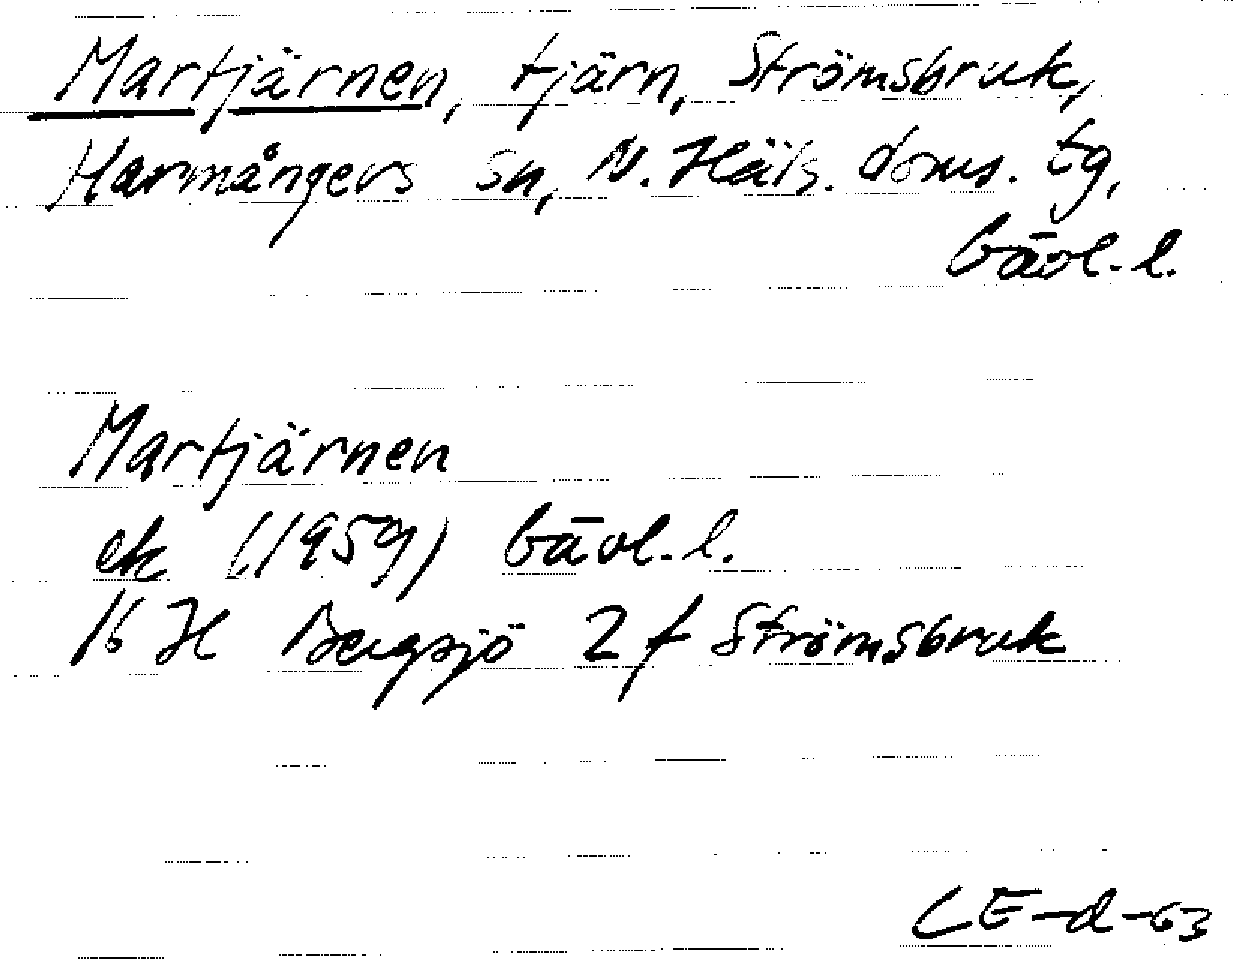 Martjärnen, tjärn, Strömsbruk,
Harmångers sn, N. Häls. doms. tg,
Gävl. l.
Martjärnen
ek (1959) Gävl. l.
16 H Bergsjö 2 f Strömsbruk
CE-d-63